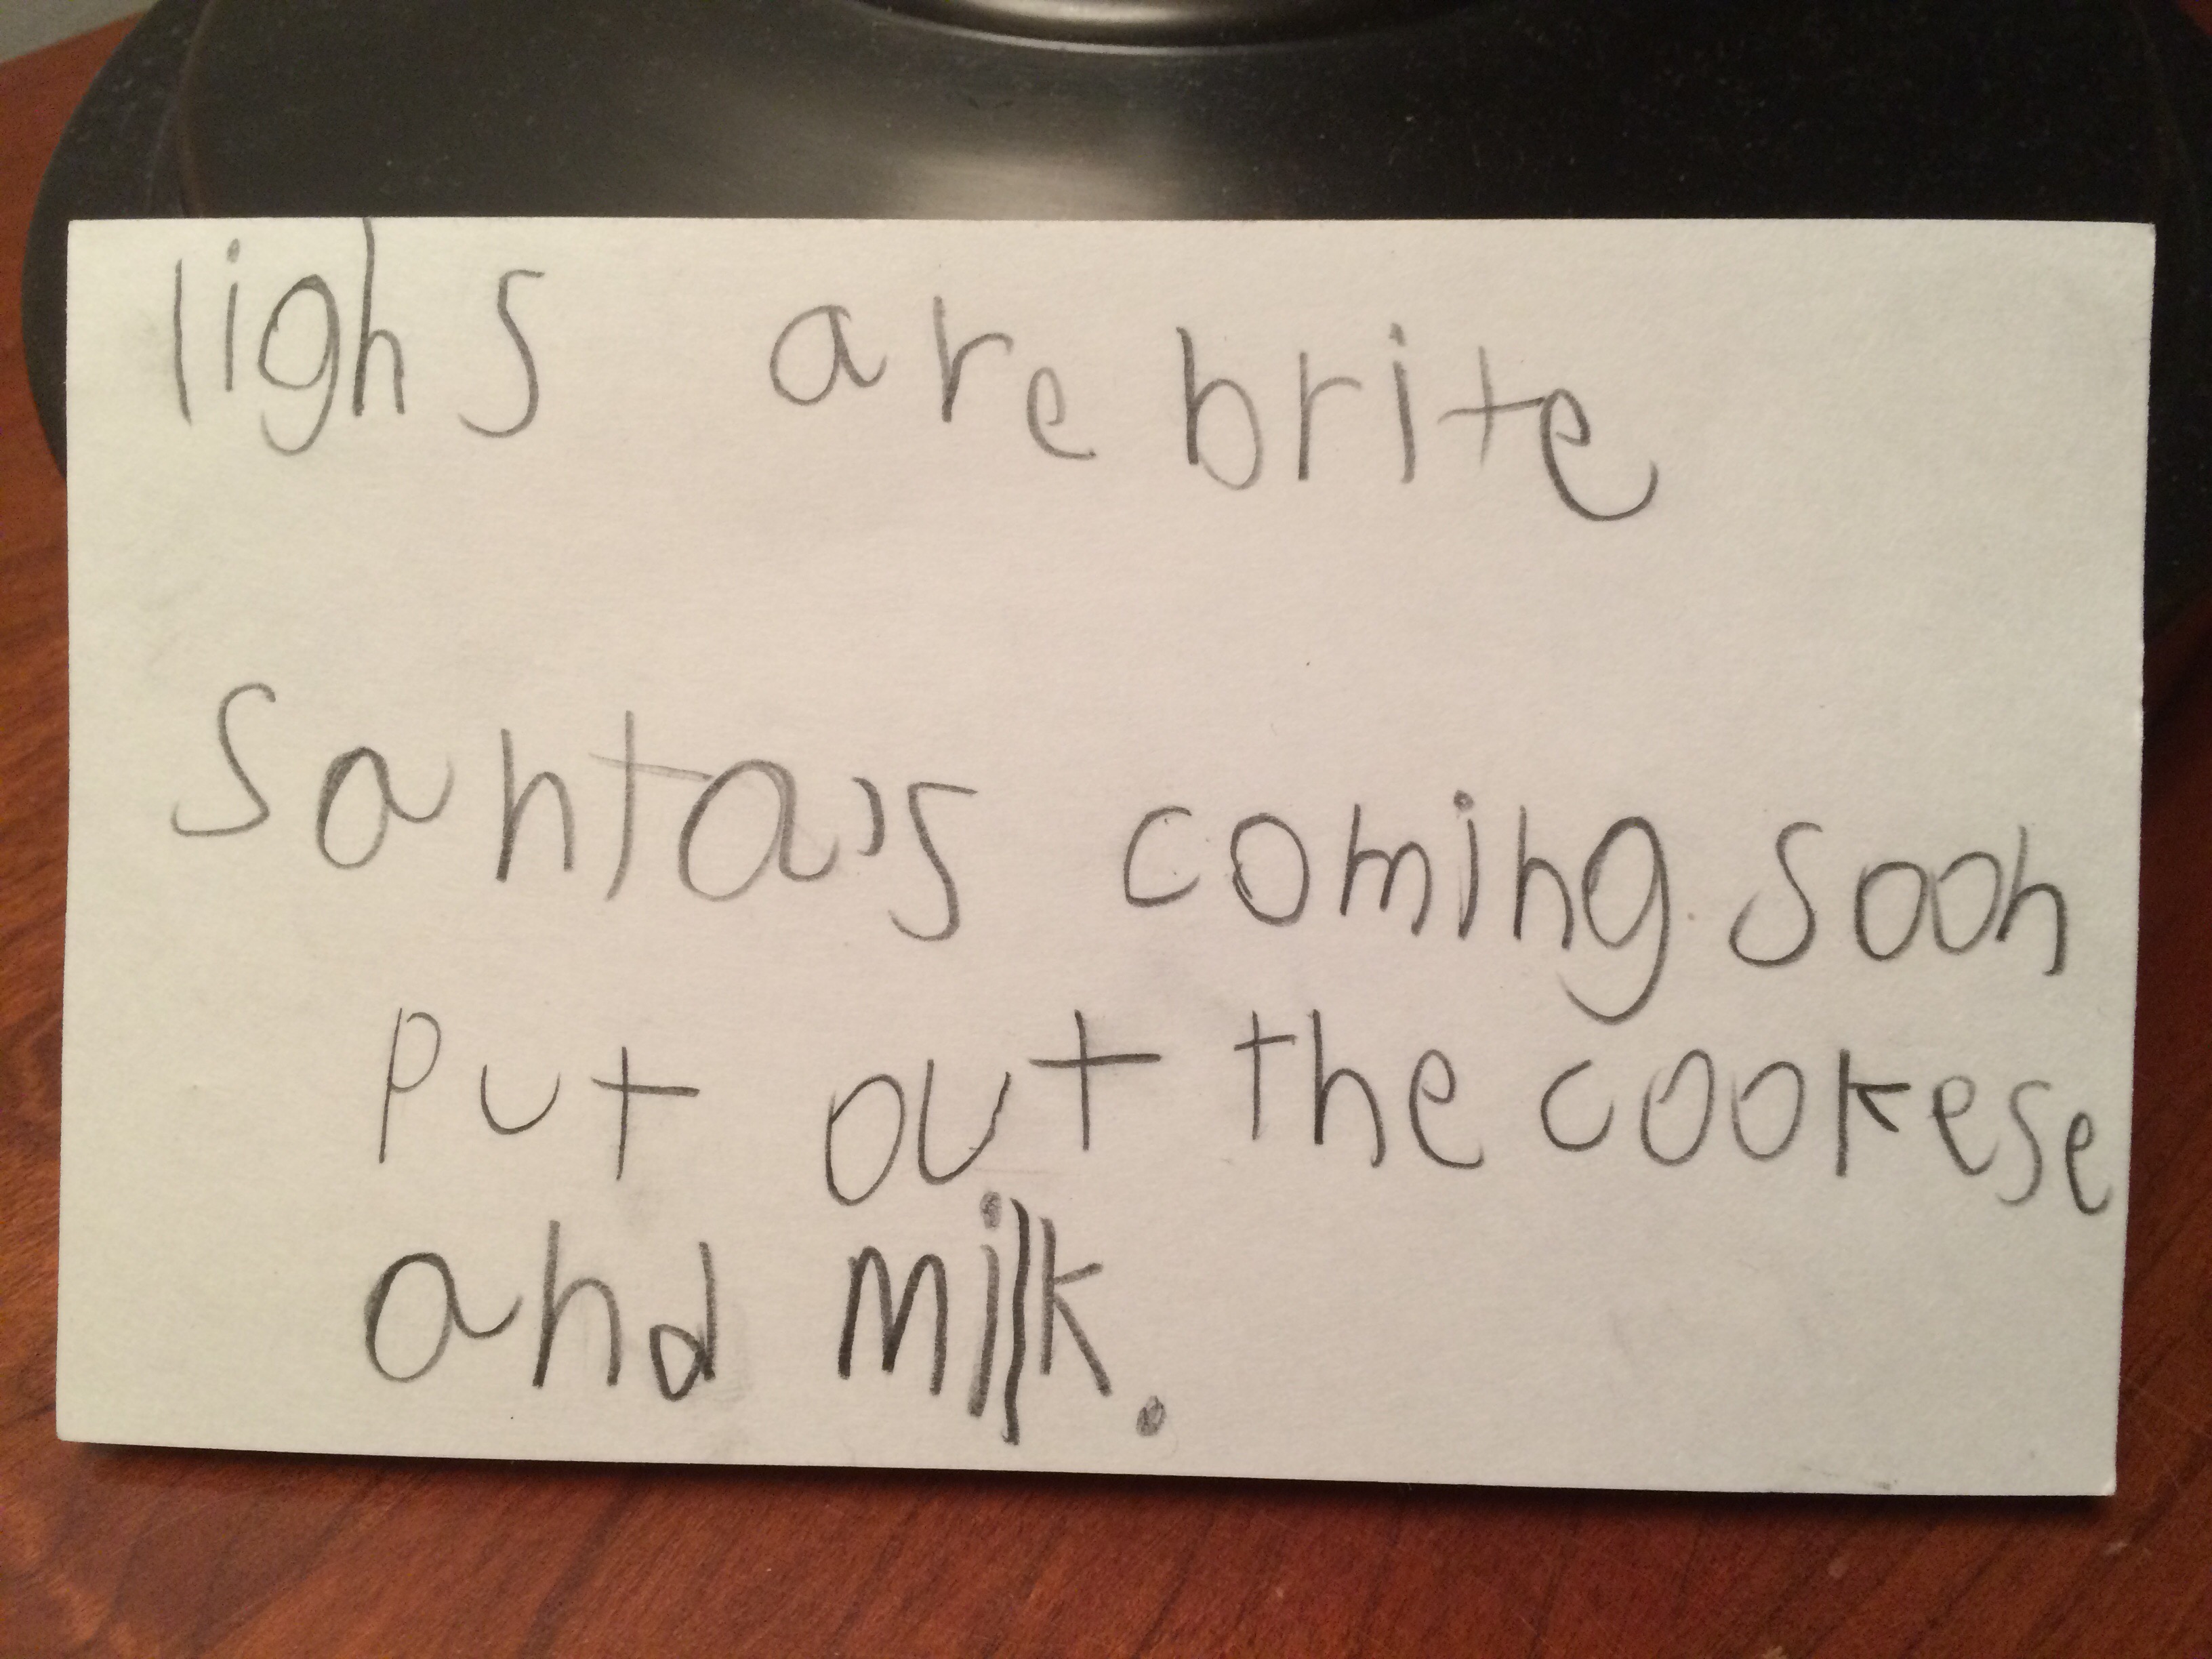 lighs are brite
Santa's coming soon
Put out the cookese
and milk.